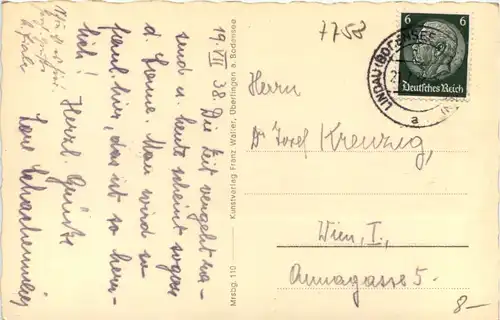 19. VII. 38. Die Zeit vergeht ra-
send u. heute scheint sogar
d. Sonne. Man wird so
faul hier, das ist so herr-
lich!
Herzl. Grüße
7758
Herrn
Dr Josef Kreuzig,
Wien, I.,
Annagasse 5.
8-
6 6
Deutsches Reich
LINDAU (BODENSEE)
a
Mrsbg. 110 Kunstverlag Franz Walter, Überlingen a. Bodensee